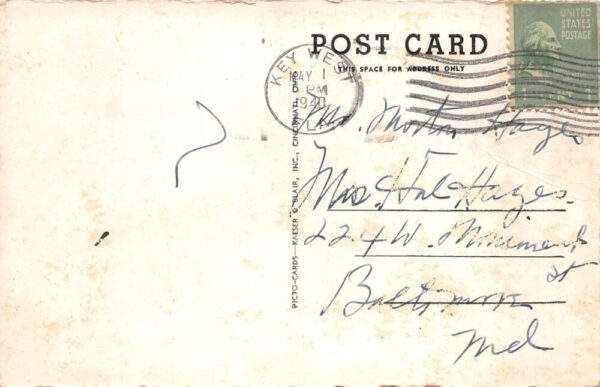 POST CARD
THIS SPACE FOR ADDRESS ONLY
UNITED STATES POSTAGE
KEY WEST
MAY 1
PM
1940
FLA.
PICTO-CARDS—KAESER & BLAIR, INC., CINCINNATI, OHIO
Hayes
Mrs Hal Hayes.
224 W. Monument
st
Baltimore
Md